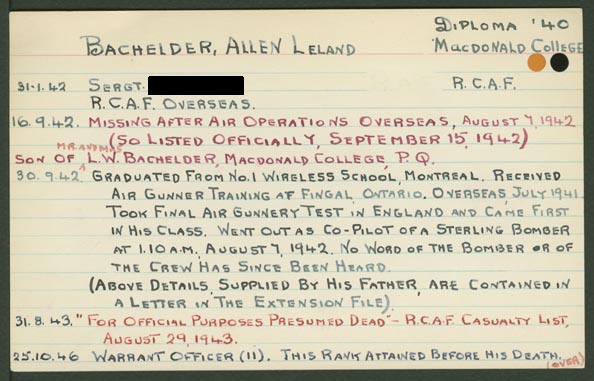 DIPLOMA '40
BACHELDER, ALLEN LELAND MACDONALD COLLEGE
31-1.42 SERGT. R.C.A.F.
R.C.A.F. OVERSEAS.
16.9.42. MISSING AFTER AIR OPERATIONS OVERSEAS, AUGUST 7, 1942
(SO LISTED OFFICIALLY, SEPTEMBER 15, 1942)
MR. AND MRS
SON OF L.W. BACHELDER, MACDONALD COLLEGE, P.Q.
30.9.42. GRADUATED FROM NO.1 WIRELESS SCHOOL, MONTREAL. RECEIVED
AIR GUNNER TRAINING AT FINGAL, ONTARIO. OVERSEAS, JULY 1941.
TOOK FINAL AIR GUNNERY TEST IN ENGLAND AND CAME FIRST
IN HIS CLASS. WENT OUT AS CO-PILOT OF A STERLING BOMBER
AT 1.10 A.M. AUGUST 7, 1942. NO WORD OF THE BOMBER OR OF
THE CREW HAS SINCE BEEN HEARD.
(ABOVE DETAILS, SUPPLIED BY HIS FATHER, ARE CONTAINED IN
A LETTER IN THE EXTENSION FILE)
31.8.43. "FOR OFFICIAL PURPOSES PRESUMED DEAD" - R.C.A.F. CASUALTY LIST,
AUGUST 29, 1943.
25.10.46 WARRANT OFFICER (11). THIS RANK ATTAINED BEFORE HIS DEATH.
(OVER)